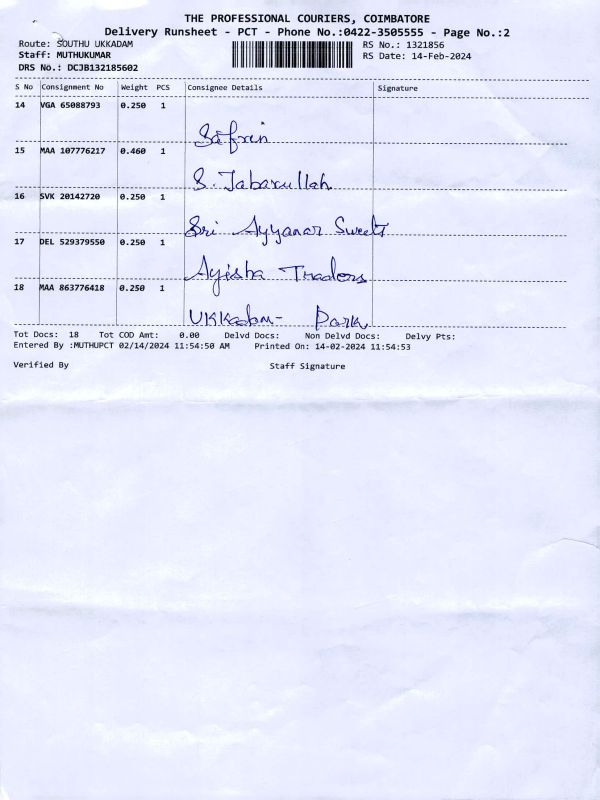 THE PROFESSIONAL COURIERS, COIMBATORE
Delivery Runsheet - PCT - Phone No.:0422-3505555 - Page No.:2
Route: SOUTHU UKKADAM
RS No.: 1321856
Staff: MUTHUKUMAR
RS Date: 14-Feb-2024
DRS No.: DCJB132185602
S No Consignment No Weight PCS Consignee Details Signature
14 VGA 65088793 0.250 1
Safrin
15 MAA 107776217 0.460 1
S. Jabarullah
16 SVK 20142720 0.250 1
Sri Ayyanar Sweets
17 DEL 529379550 0.250 1
Ayisha Traders
18 MAA 863776418 0.250 1
Ukkadam- Park
Tot Docs: 18 Tot COD Amt: 0.00 Delvd Docs: Non Delvd Docs: Delvy Pts:
Entered By :MUTHUPCT 02/14/2024 11:54:50 AM Printed On: 14-02-2024 11:54:53
Verified By Staff Signature